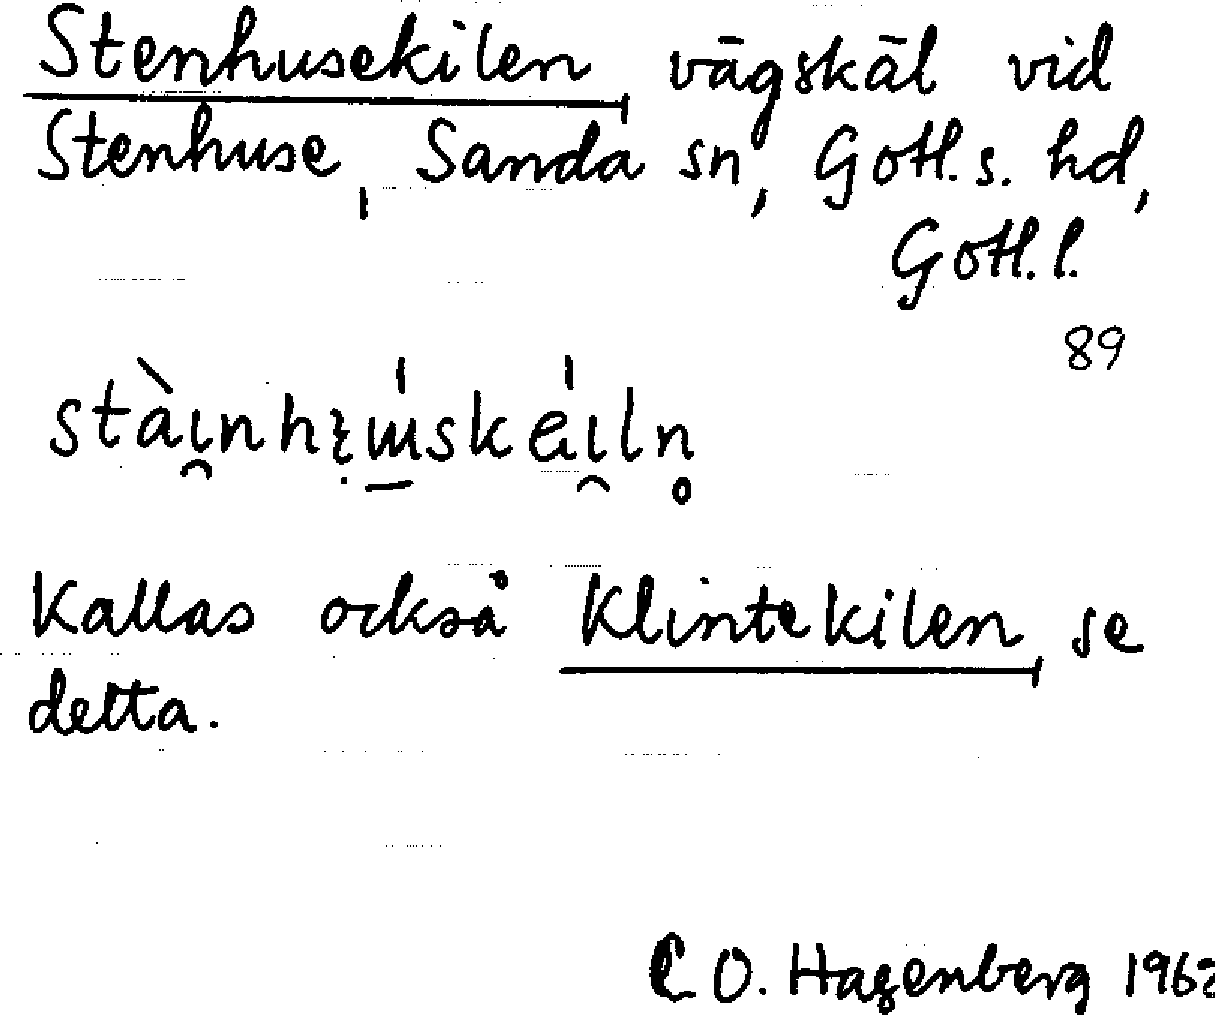 Stenhusekilen, vägskäl vid
Stenhuse, Sanda sn, Gotl. s. hd,
Gotl. l.
89
Kallas också Klintekilen, se
detta.
C O. Hagenberg